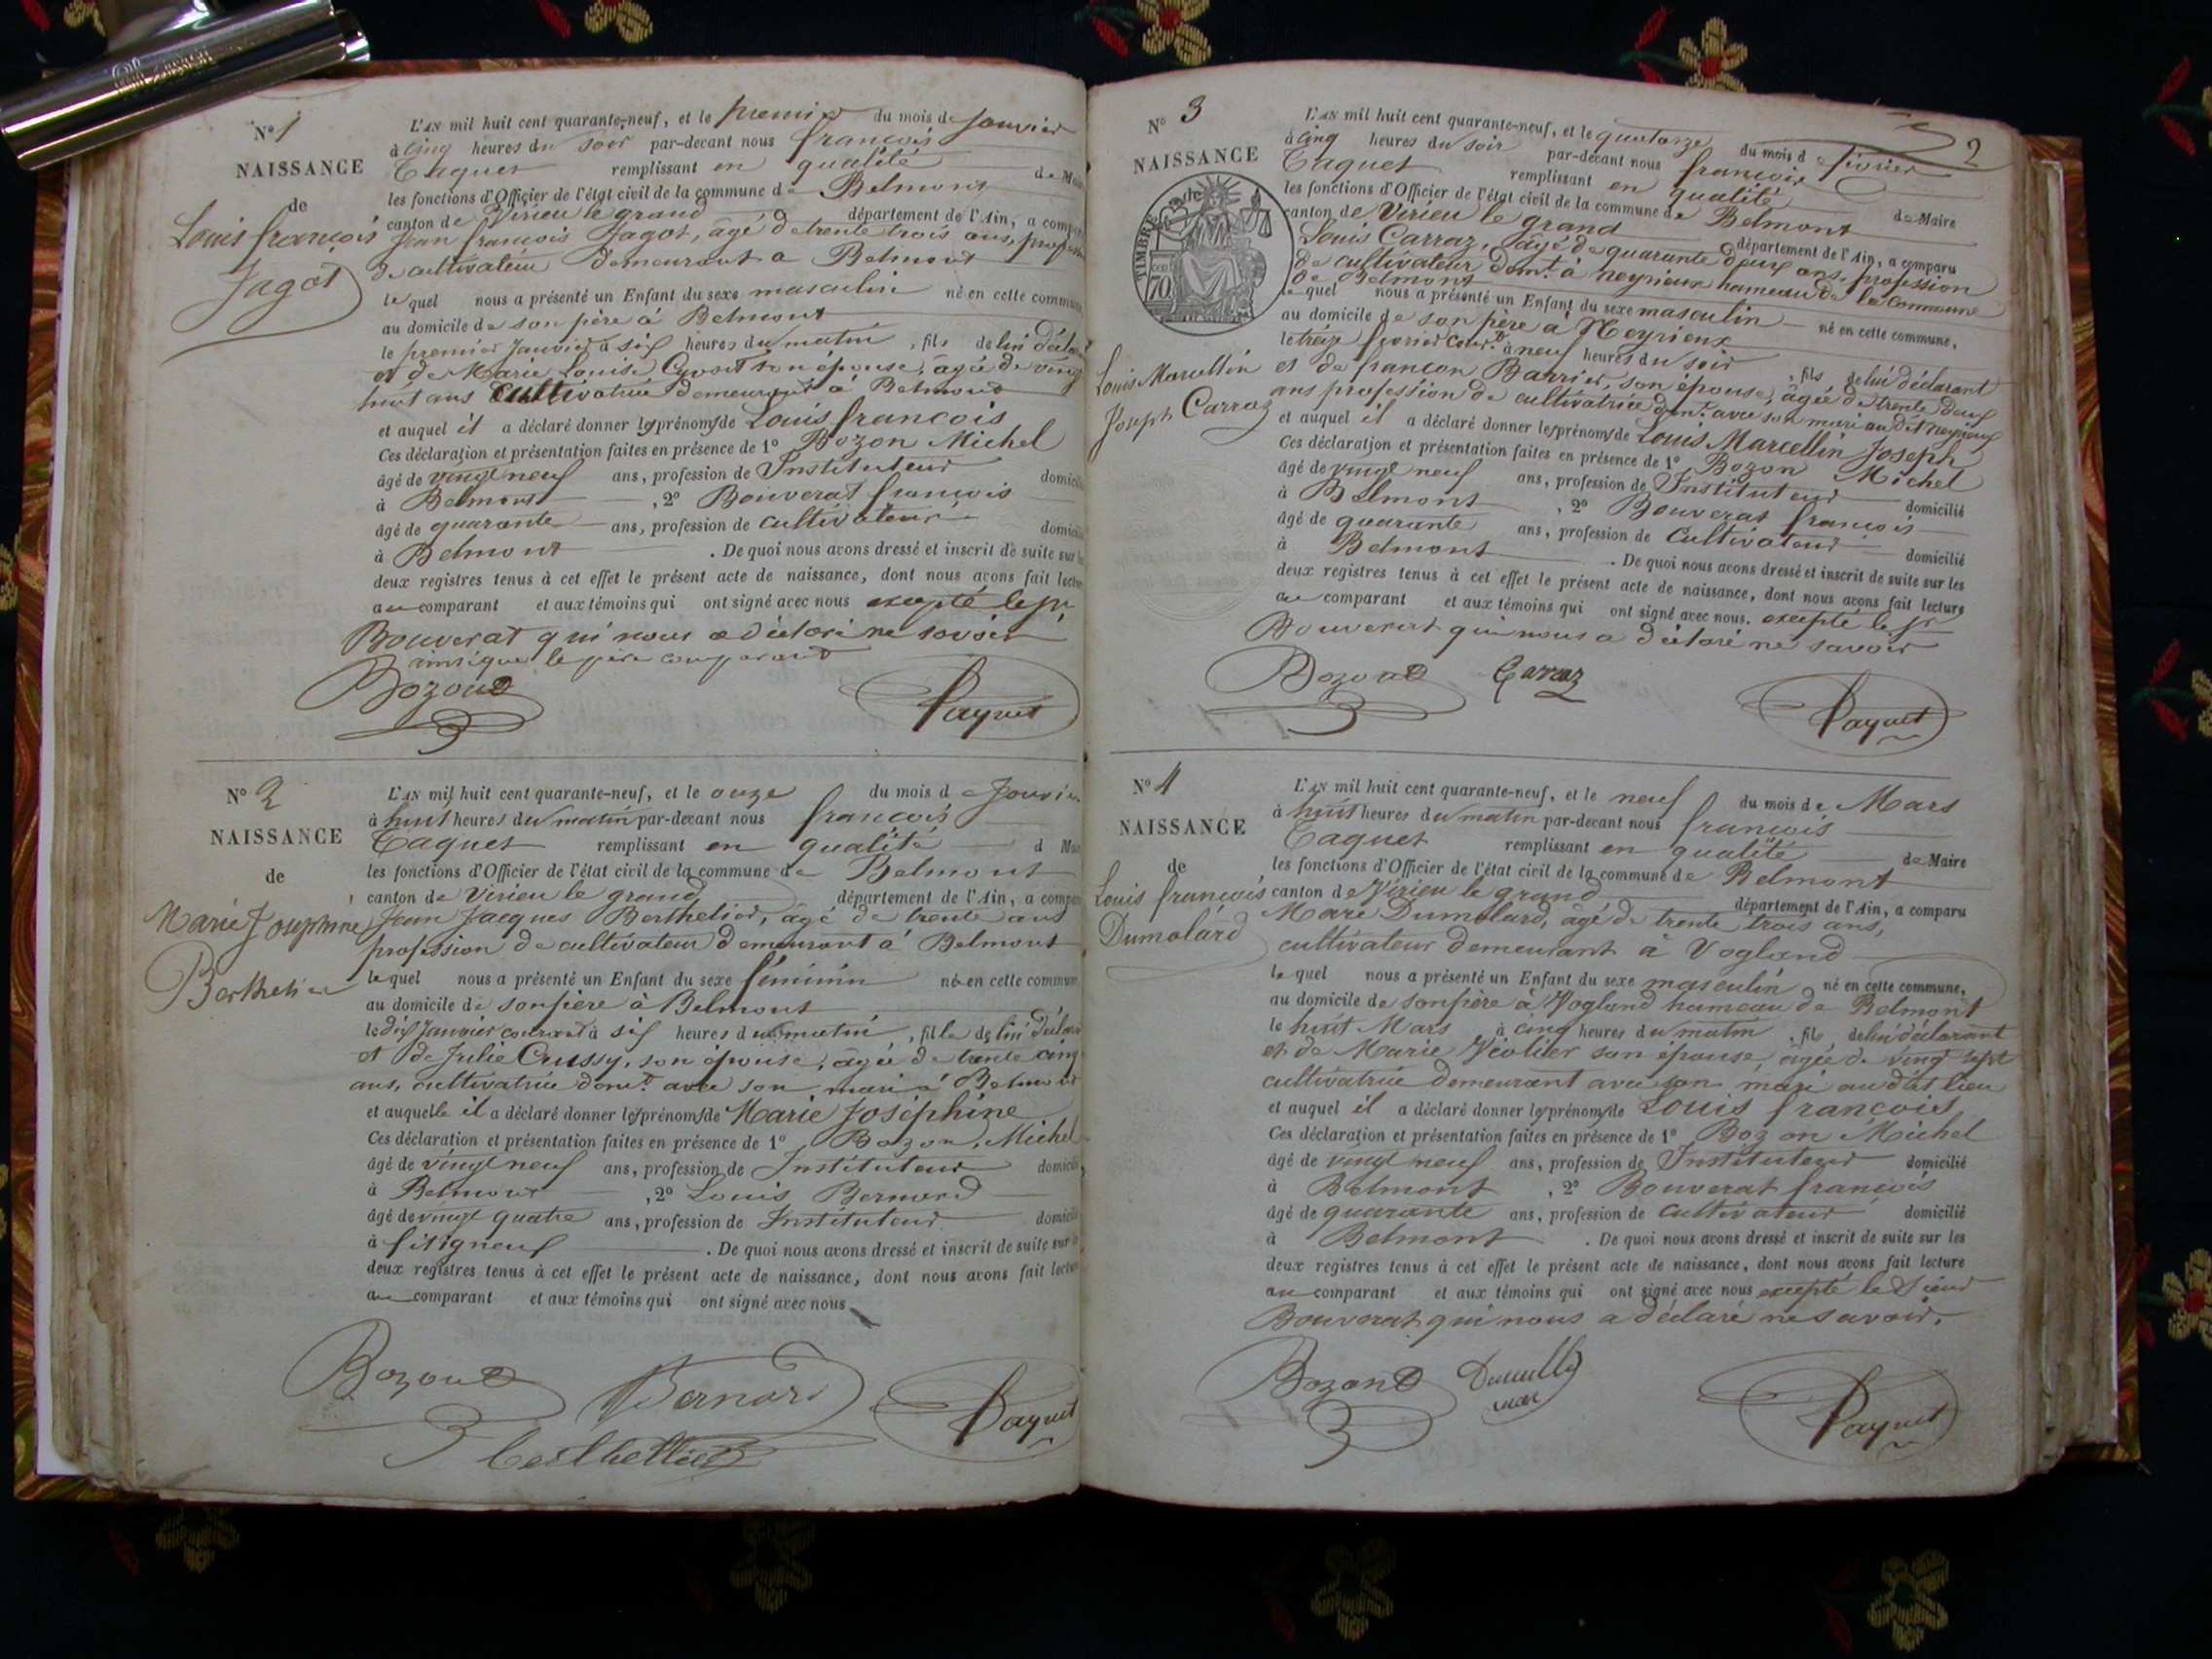 N° 1
NAISSANCE
de
Louis françois
Jagot
L'AN mil huit cent quarante-neuf, et le premier du mois de Janvier
à cinq heures du soir par-devant nous françois
Paquet remplissant en qualité de
les fonctions d'Officier de l'état civil de la commune de Belmont
canton de Virieu le grand département de l'Ain, a
Jean françois Jagot, âgé de trente trois ans,
de cultivateur demeurant a Belmont
lequel nous a présenté un Enfant du sexe masculin né en cette
au domicile de son père à Belmont
le premier Janvier à six heures du matin, fils de lui
et de Marie Louise son épouse, âgée de
huit ans cultivatrice demeurant à Belmont
et auquel il a déclaré donner les prénoms de Louis françois
Ces déclaration et présentation faites en présence de 1° Bozon Michel
âgé de vingt neuf ans, profession de Instituteur
à Belmont , 2° Bouverat françois
âgé de quarante ans, profession de cultivateur
à Belmont . De quoi nous avons dressé et inscrit de suite sur
deux registres tenus à cet effet le présent acte de naissance, dont nous avons fait
au comparant et aux témoins qui ont signé avec nous excepté le sr
Bouverat qui nous a déclaré ne savoir
ainsi que le père comparant
Bozon
Paquet
N° 2
NAISSANCE
de
Marie Josephine
Berthelier
L'AN mil huit cent quarante-neuf, et le onze du mois de
à huit heures du matin par-devant nous françois
Paquet remplissant en qualité d
les fonctions d'Officier de l'état civil de la commune de Belmont
canton de Virieu le grand département de l'Ain, a
Jean Jacques Berthelier, âgé de trente ans
profession de cultivateur demeurant à Belmont
lequel nous a présenté un Enfant du sexe féminin né en cette
au domicile de son père à Belmont
le dix Janvier courant à six heures du matin, fille de lui
et de Julie Crussy, son épouse, âgée de trente cinq
ans, cultivatrice demt avec son mari à Belmont
et auquelle il a déclaré donner les prénoms de Marie Joséphine
Ces déclaration et présentation faites en présence de 1° Bozon, Michel
âgé de vingt neuf ans, profession de Instituteur
à Belmont , 2° Louis Bernard
âgé de vingt quatre ans, profession de Instituteur
à . De quoi nous avons dressé et inscrit de suite sur
deux registres tenus à cet effet le présent acte de naissance, dont nous avons fait
au comparant et aux témoins qui ont signé avec nous
Bozon
Bernard
Paquet
Berthellier
2
N° 3
NAISSANCE
TIMBRE
70
Louis Marcellin
Joseph Carraz
L'AN mil huit cent quarante-neuf, et le quatorze du mois d février
à cinq heures du soir par-devant nous françois
Paquet remplissant en qualité de Maire
les fonctions d'Officier de l'état civil de la commune de Belmont
canton de Virieu le grand département de l'Ain, a comparu
Louis Carraz, âgé de quarante deux ans, profession
de cultivateur, demt à neyrieux hameau de la Commune
de Belmont
lequel nous a présenté un Enfant du sexe masculin né en cette commune,
au domicile de son père à Neyrieux
le treize février court à neuf heures du soir , fils de lui déclarant
et de Barrier, son épouse, âgée de trente deux
ans profession de cultivatrice demt avec son mari au dit neyrieux
et auquel il a déclaré donner les prénoms de Louis Marcellin Joseph
Ces déclaration et présentation faites en présence de 1° Bozon Michel
âgé de vingt neuf ans, profession de Instituteur domicilié
à Belmont , 2° Bouverat françois
âgé de quarante ans, profession de Cultivateur domicilié
à Belmont . De quoi nous avons dressé et inscrit de suite sur les
deux registres tenus à cet effet le présent acte de naissance, dont nous avons fait lecture
au comparant et aux témoins qui ont signé avec nous. excepté le sr
Bouverat qui nous a déclaré ne savoir
Bozon
Carraz
Paquet
N° 4
NAISSANCE
de
Louis françois
Dumolard
L'AN mil huit cent quarante-neuf, et le neuf du mois de Mars
à huit heures du matin par-devant nous françois
Paquet remplissant en qualité de Maire
les fonctions d'Officier de l'état civil de la commune de Belmont
canton de Virieu le grand département de l'Ain, a comparu
Marc Dumolard, âgé de trente trois ans,
cultivateur demeurant à Vogland
lequel nous a présenté un Enfant du sexe masculin né en cette commune,
au domicile de son père à Vogland hameau de Belmont
le huit Mars à cinq heures du matin , fils de lui déclarant
et de Marie son épouse, âgée de vingt sept
cultivatrice demeurant avec son mari au dit lieu
et auquel il a déclaré donner les prénoms de Louis françois
Ces déclaration et présentation faites en présence de 1° Bozon Michel
âgé de vingt neuf ans, profession de Instituteur domicilié
à Belmont , 2° Bouverat françois
âgé de quarante ans, profession de cultivateur domicilié
à Belmont . De quoi nous avons dressé et inscrit de suite sur les
deux registres tenus à cet effet le présent acte de naissance, dont nous avons fait lecture
au comparant et aux témoins qui ont signé avec nous excepté le Sieur
Bouverat qui nous a déclaré ne savoir.
Bozon
Paquet